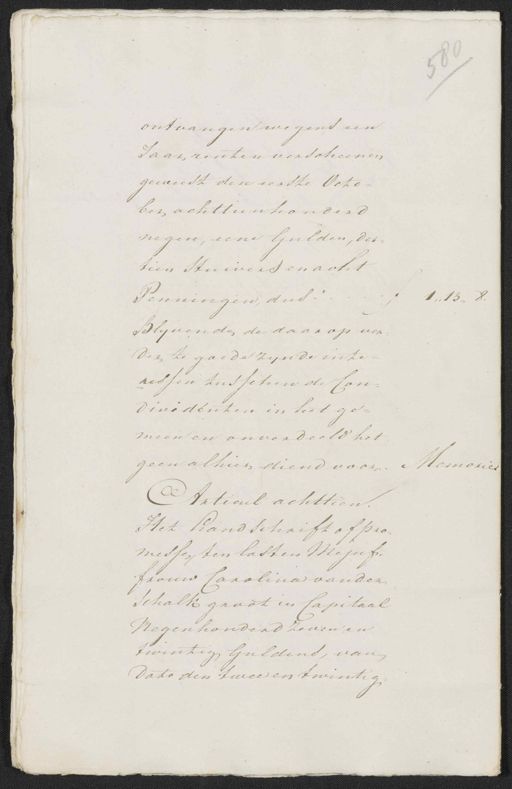 580
ontvangen wegens een
Jaar renten verscheenen
geweest den eerste Octo-
ber, achttienhonderd
negen, eene Gulden, der-
tien Stuivers en acht
Penningen, dus . . . . . ƒ 1,, 13,, 8.
Blijvende, de daarop ver-
der, te goede zijnde inte-
ressen tusschen de Con-
dividenten in het ge-
meen en onverdeeld het
geen alhier, diend voor, . Memorie
Articul achttien.
Het Handschrift of pro-
messe, ten lasten Mejuf-
frouw Carolina vander
Schalk groot in Capitaal
Negenhonderd Zeven en
twintig, Guldens, van
Dato den twee en twintig,